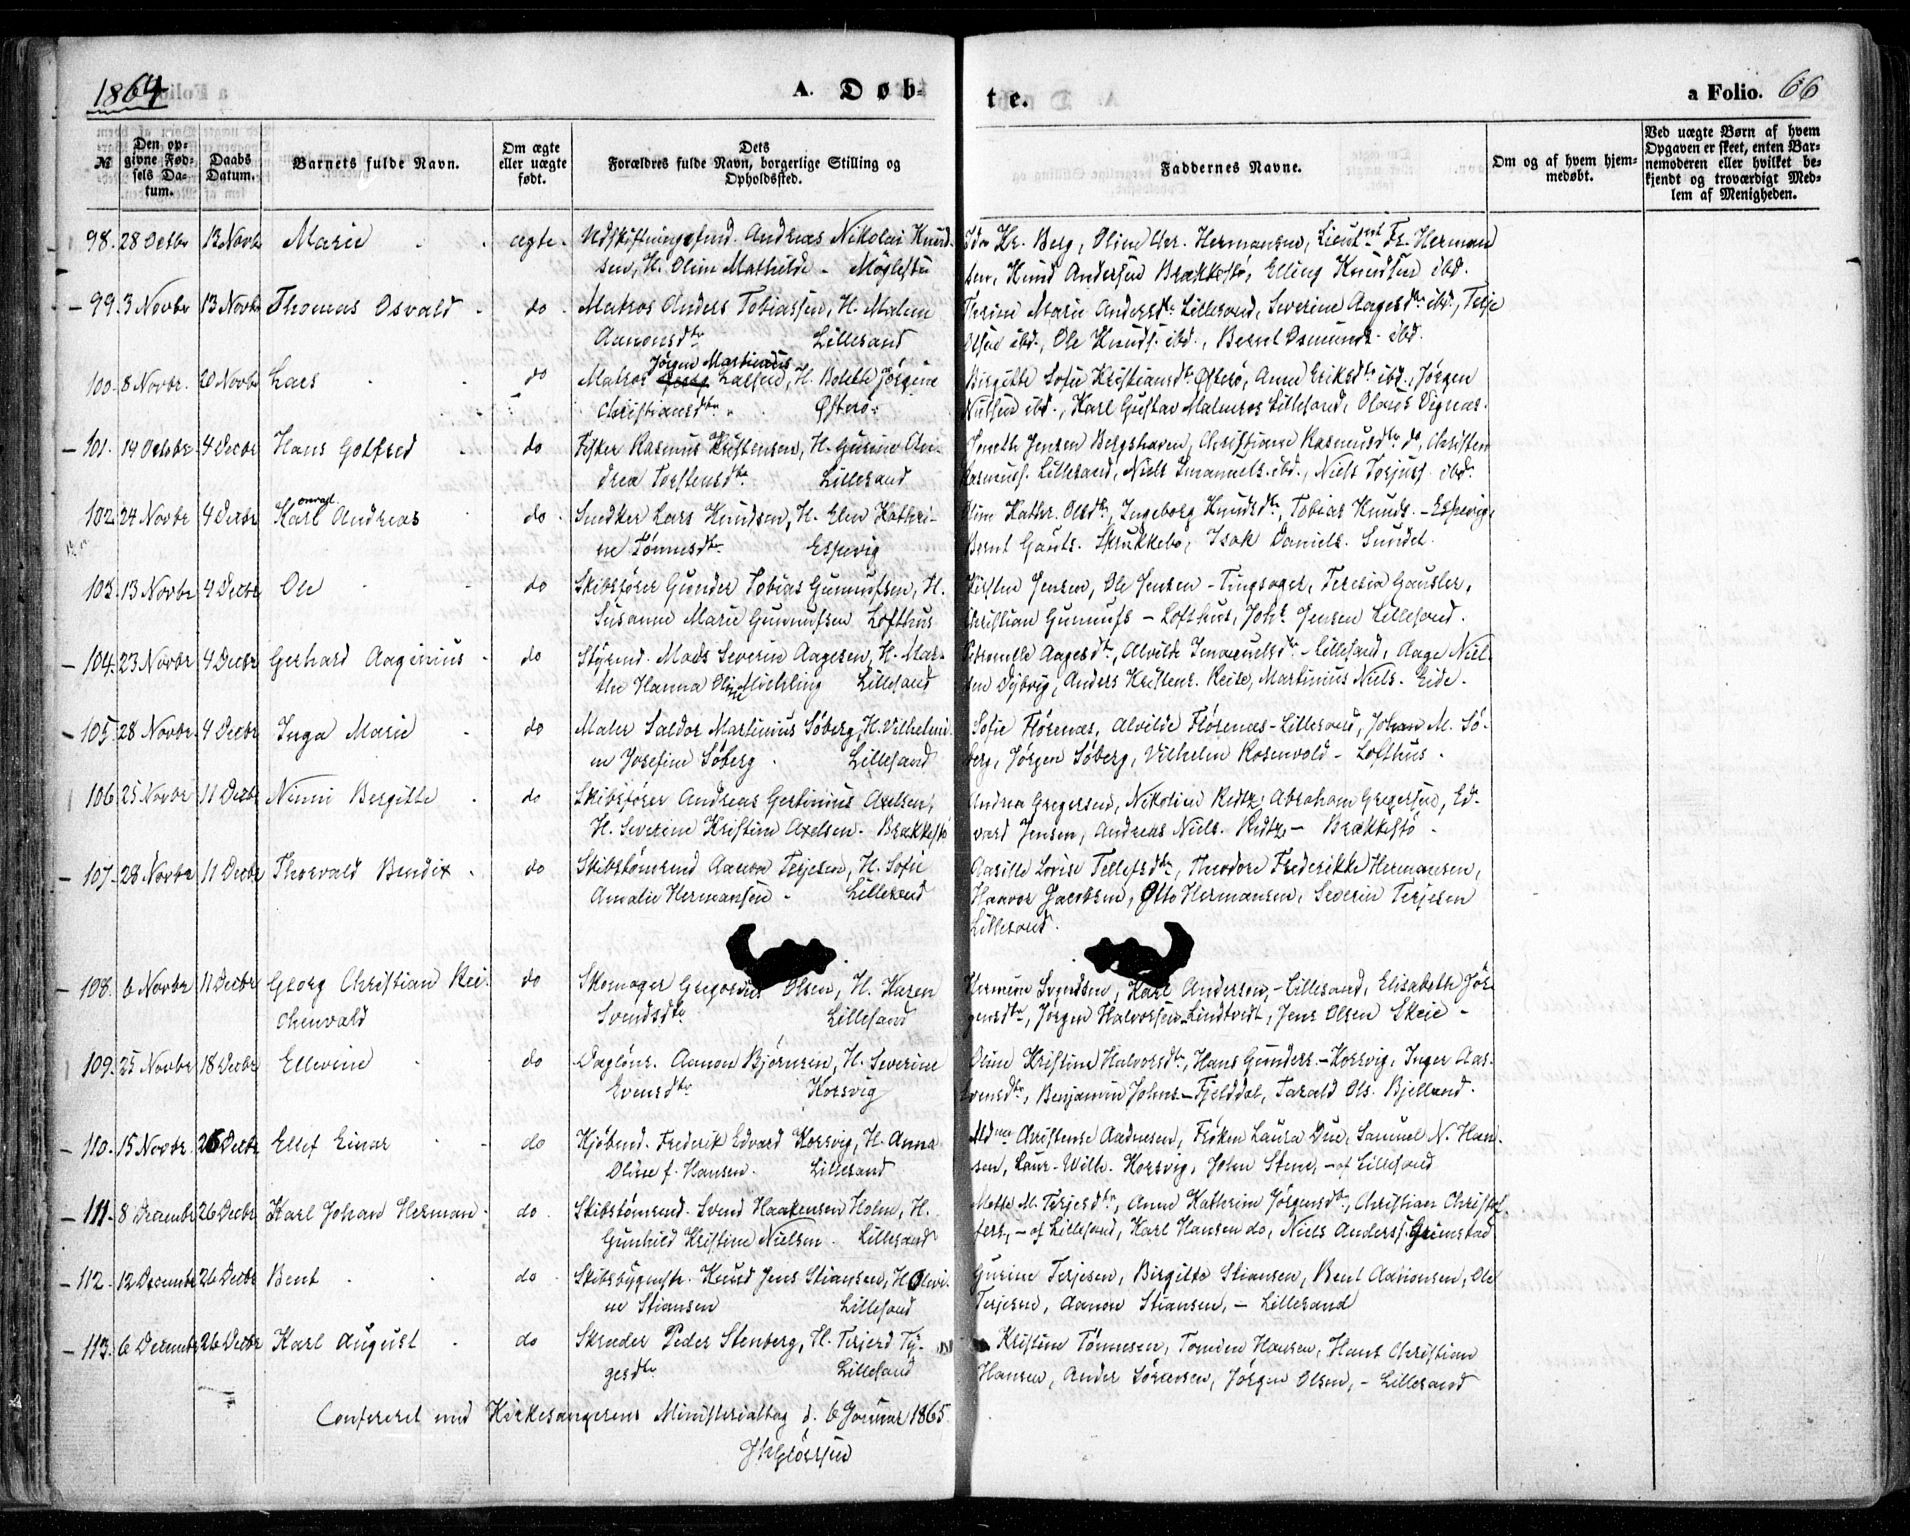 1864
A. Døb-
te.
a Folio. 66
№
Den op-
givne Fød-
sels Da-
tum.
Daabs
Datum.
Barnets fulde Navn.
Om ægte
eller uægte
født.
Dets
Forældres fulde Navn, borgerlige Stilling og
Opholdssted.
Faddernes Navne.
Om og af hvem hjem-
medøbt.
Ved uægte Børn af hvem
Opgaven er skeet, enten Bar-
nemoderen eller hvilket be-
kjendt og troværdigt Med-
lem af Menigheden.
98. 28 Octbr 13 Novbr Marie ægte. Udskiftningsfmd. Andreas Nikolai Knud-
sen, H. Oline Mathilde - Møglestu
Kr. Berg, Oline Hermansen, Lieutnt Fr. Herman
sen, Knud Andersen Brækkestø, Elling Knudsen ibd.
99. 3 Novbr 13 Novbr Thomas Osvald do Matros Anders Tobiassen, H. Malen
Aanonsdtr Lillesand
Terine Marie Andersdtr Lillesand, Severine Aagesdtr ibd., Terje
Olsen ibd., Ole Knuds. ibd., Bernt Osmunds. ibd.
100. 8 Novbr. 20 Novbr Lars do Matros Jørgen Martinius Larsen, H. Bolette Jørgine
Christiansdtr Østerø
Birgitte Sofie Kristiansdtr Østerø, Anne Eriksdtr ibd., Jørgen
Nielsen ibd., Karl Gustav Malmros Lillesand, Olaus Vignæs.
101. 19 Octobr 4 Decbr Hans Gotfred do Fisker Rasmus Kristensen, H. Gurine An-
drea Torstensdtr Lillesand
Jensen Bergshaven, Christiane Rasmusdtr do, Christen
Rasmuss. Lillesand, Niels Imanuels. ibd., Niels Torjuss. ibd.
102. 24 Novbr 4 Decbr Karl onrad Andreas do Snedker Lars Knudsen, H. Elen Kathri-
ne Tønnesdtr Espevig
Oline Kathr. Olsdtr, Ingeborg Knudsdtr, Tobias Knuds. - Espevig,
Bernt Gauts. Skrukkebo, Isak Daniels. Sundet.
103. 13 Novbr 4 Decbr Ole do Skibsfører Gunder Tobias Gunnufsen, H.
Susanne Marie Gunnufsen Lofthus
Kirsten Jensen, Ole Jensen - Tingsager, Teresia Gausler,
Christian Gunnufs - Lofthus, Johs Jensen Lillesand.
104. 23 Novbr 4 Decbr Gerhard Aaginius do Styrmd. Mads Severin Aagesen, H. Mar-
the Hanna Oline Mickling Lillesand
Petronelle Aagesdtr, Alvilde Imanuelsdtr - Lillesand, Aage Niel-
sen Dybvig, Anders Kristens. Reise, Martinius Niels. Eide.
105. 28 Novbr 4 Decbr Inga Marie do Maler Saldor Martinius Søberg, H. Vilhelmi-
ne Josefine Søberg. Lillesand
Sofie Flørenæs, Alvilde Flørenæs - Lillesand, Johan M. Sø-
berg, Jørgen Søberg, Vilhelm Rosenvold - Lofthus.
106. 25 Novbr 11 Decbr Ninni Bergitte do Skibsfører Andreas Gertinius Axelsen,
H. Severine Kristine Axelsen. Brækkestø
Andrea Gregersen, Nikoline Reitz, Abraham Gregersen, Ed-
vard Jensen, Andreas Niels. Reitz, - Brækkestø.
107. 28 Novbr 11 Decbr Thorvald Bendix do Skibstømrmd Aanon Terjesen, H. Sofie
Amalie Hermansen. Lillesand
Aasille Lovise Tellefsdtr, Theodore Frederikke Hermansen,
Haavor Jacobsen, Otto Hermansen, Severin Terjesen
Lillesand.
108. 6 Novbr 11 Decbr Georg Christian Rei-
chenvald do Skomager Gregorius Olsen, H. Karen
Svendsdtr Lillesand
Hermine Svendsen, Karl Andersen, - Lillesand, Elisabeth Jør-
gensdtr, Jørgen Halvorsen Lindtvedt, Jens Olsen Skeie -
109. 25 Novbr 18 Decbr Ellevine do Dagløns. Aanon Bjørnsen, H. Severine
Evensdtr Korsvig
Oline Kristine Halvorsdtr, Hans Gunders. - Korsvig, Inger Aas-
Evensdtr, Benjamin Johns. - Fjelddal, Tarald Ols. Bjelland.
110. 15 Novbr. 26 Decbr Ellef Einar do Kjøbmd. Frederik Edvard Korsvig, H. Anna
Oline f. Hansen. Lillesand
Christense Aadnesen, Frøken Laura Due, Samuel N. Han-
sen, Laur. Wilh. Korsvig, John Stene, - af Lillesand
111. 8 Decembr 26 Decbr Karl Johan Herman do. Skibstømrmd. Svend Haakensen Holm, H.
Gunhild Kristine Nielsen. Lillesand
Mette M. Terjesdtr, Anne Kathrine Jørgensdtr, Christian Christof-
fers, - af Lillesand, Karl Hansen do, Niels Anderss. Grimstad
112. 12 Decembr 26 Decbr Bent do Skibsbygmstr. Knud Jens Stiansen, H. Olevi-
ne Stiansen Lillesand
Gurine Terjesen, Birgitte Stiansen, Bent Aanonsen, Ole
Terjesen, Aanon Stiansen, - Lillesand
113. 6 Decembr 26 Decbr Karl August do Skræder Peder Stenberg, H. Terjerd Ty-
gesdtr Lillesand
Kristine Tønnesen, Tomine Hansen, Hans Christian
Hansen, Ander Sørensen, Jørgen Olsen, - Lillesand
Confereret med Kirkesangerens Ministerialbog d. 6 Januar 1865